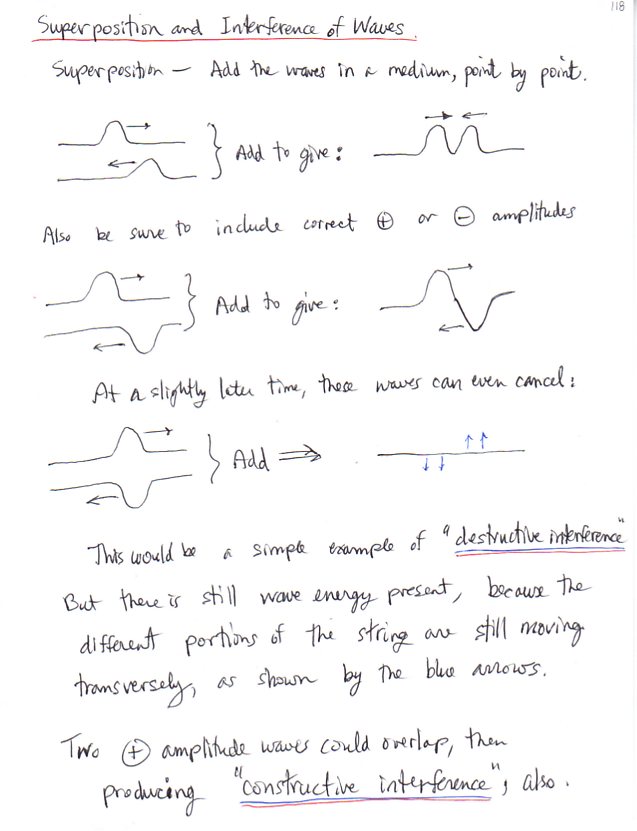 118
Superposition and Interference of Waves.
Superposition — Add the waves in a medium, point by point.
Add to give:
Also be sure to include correct ⊕ or ⊖ amplitudes
Add to give:
At a slightly later time, these waves can even cancel:
Add ⇒
This would be a simple example of "destructive interference"
But there is still wave energy present, because the
different portions of the string are still moving
transversely, as shown by the blue arrows.
Two ⊕ amplitude waves could overlap, then
producing "constructive interference", also.